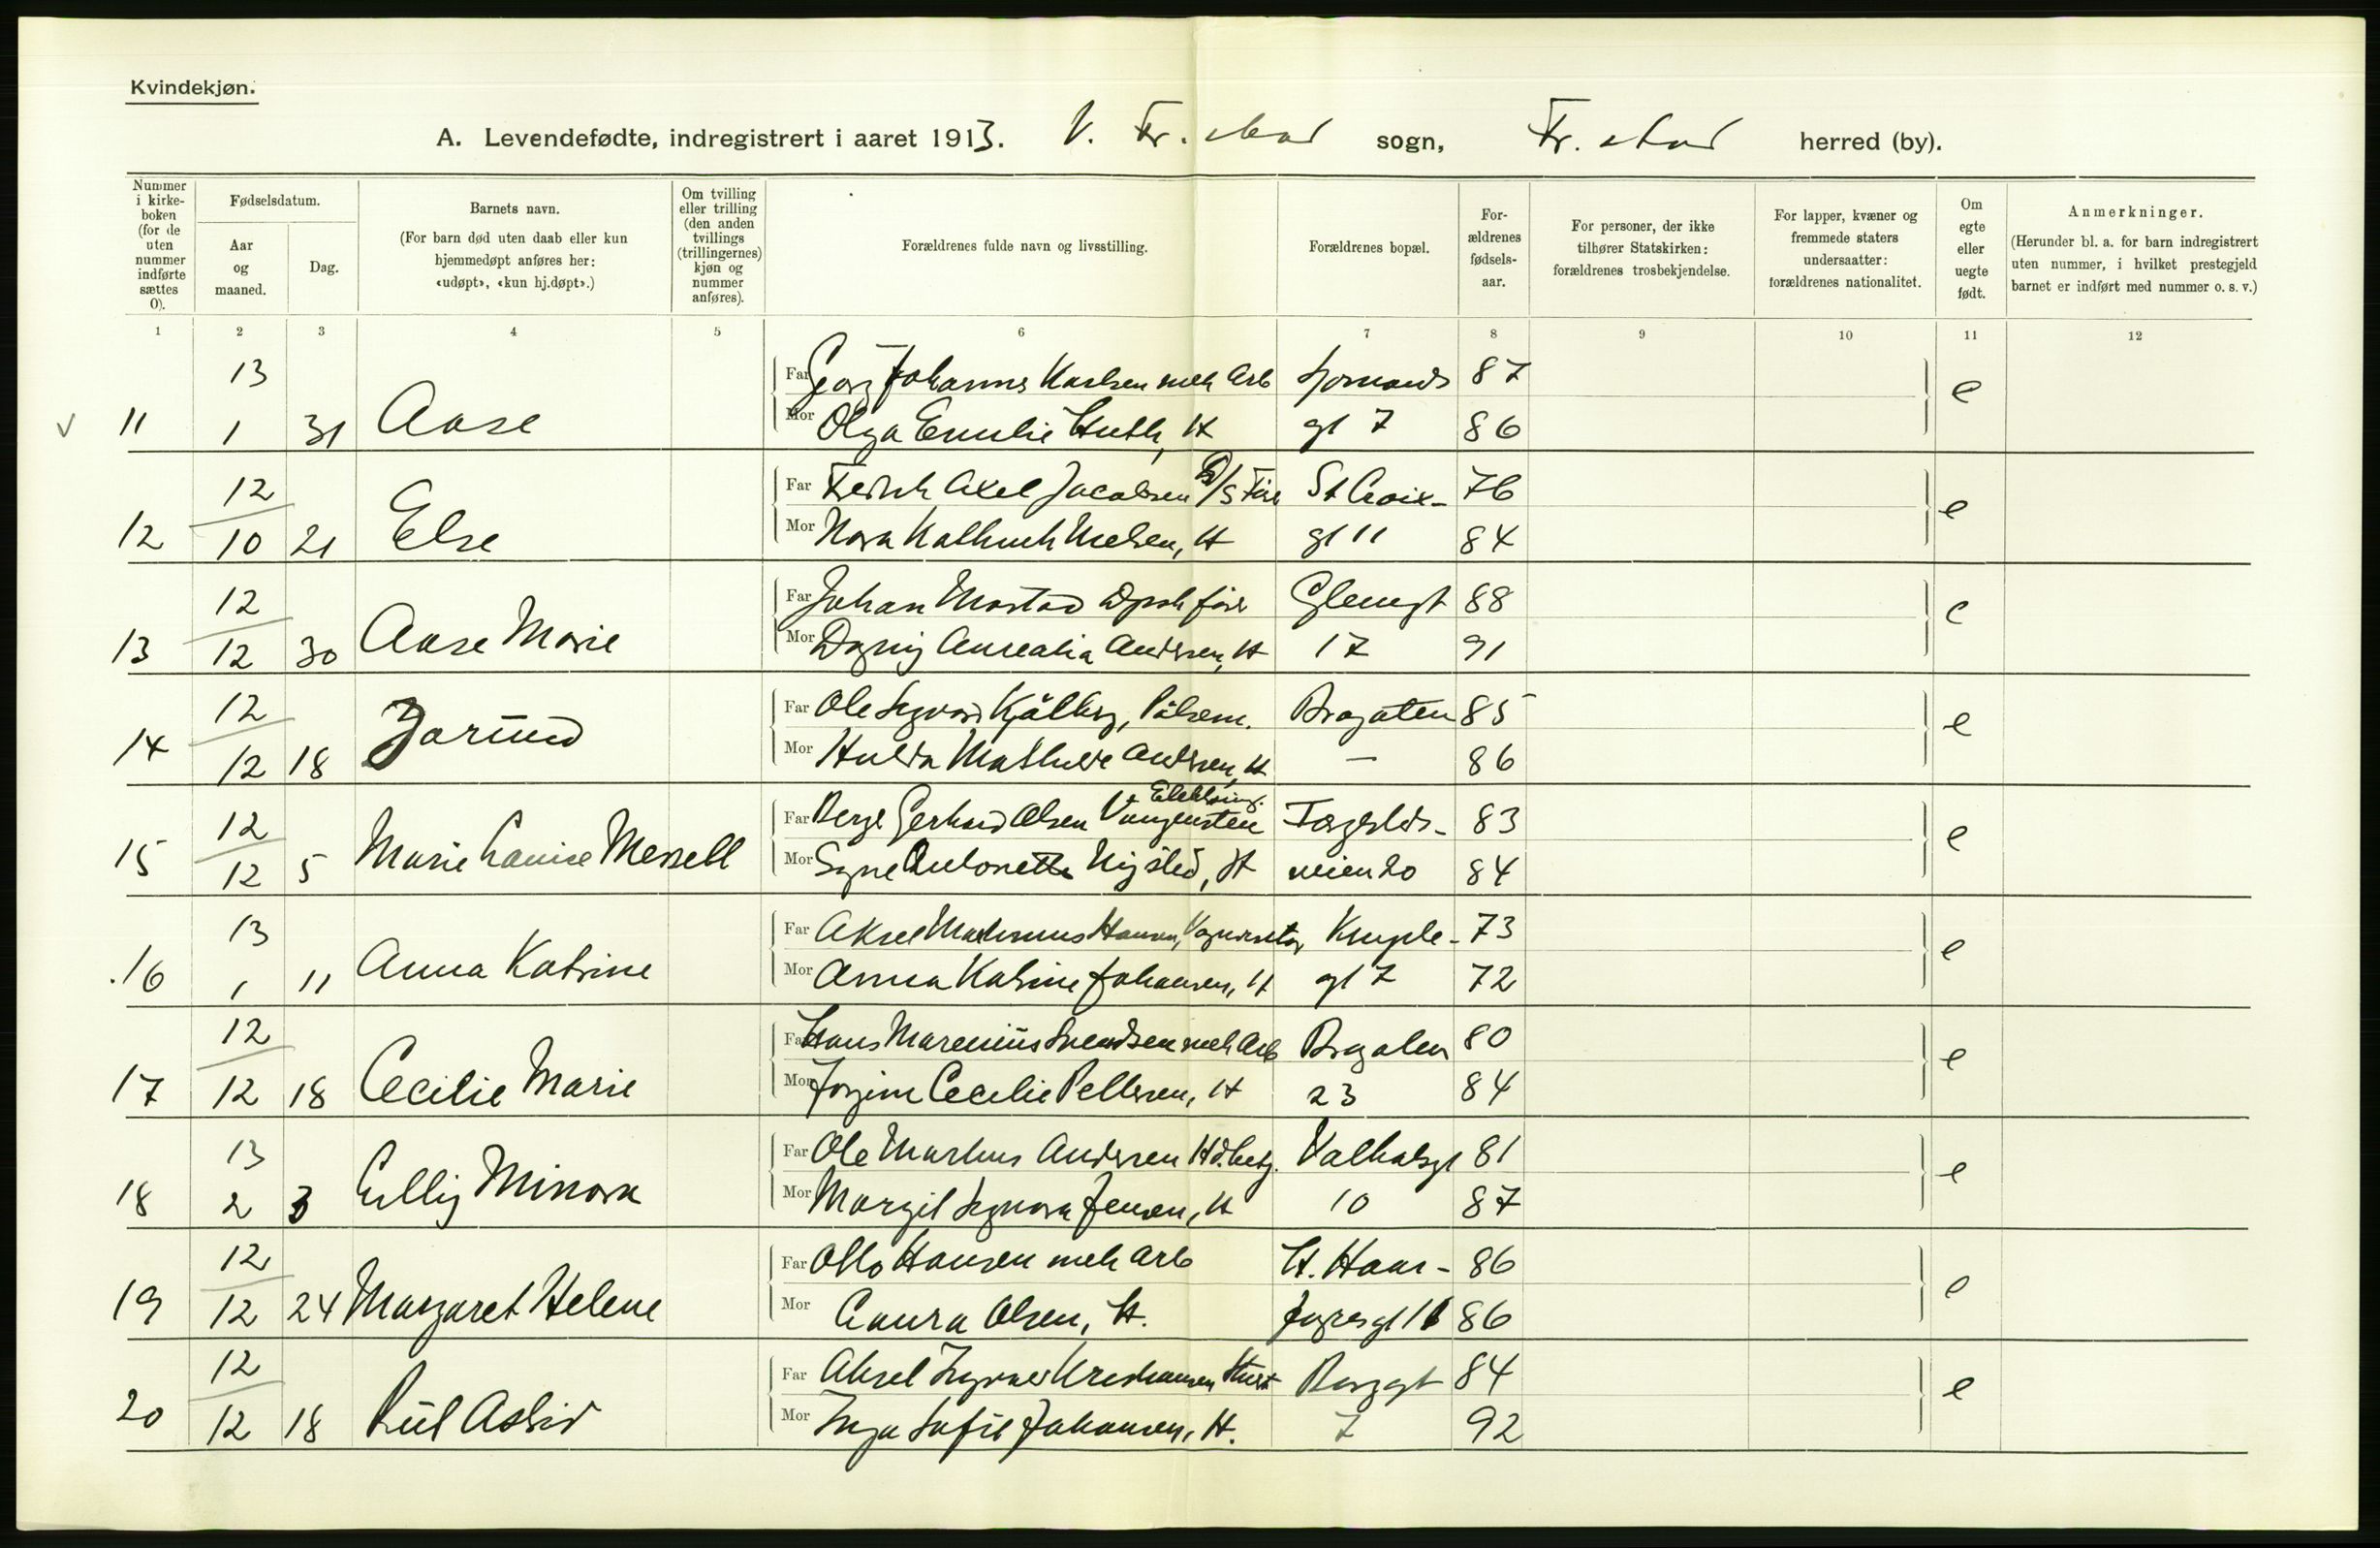 Kvindekjøn.
A. Levendefødte, indregistrert i aaret 1913. V. Fr.stad sogn, Fr.stad herred (by).
Nummer i kirke-boken (for de uten nummer indførte sættes 0).
Fødselsdatum.
Aar og maaned.
Dag.
Barnets navn.
(For barn død uten daab eller kun hjemmedøpt anføres her: «udøpt», «kun hj.døpt».)
Om tvilling eller trilling (den anden tvillings (trillingernes) kjøn og nummer anføres).
Forældrenes fulde navn og livsstilling.
Forældrenes bopæl.
For-ældrenes fødsels-aar.
For personer, der ikke tilhører Statskirken: forældrenes trosbekjendelse.
For lapper, kvæner og fremmede staters undersaatter: forældrenes nationalitet.
Om egte eller uegte født.
Anmerkninger.
(Herunder bl. a. for barn indregistrert uten nummer, i hvilket prestegjeld barnet er indført med nummer o. s. v.)
1 2 3 4 5 6 7 8 9 10 11 12
13 Far Georg Johannes Karlsen mek Arb 87
v 11 1 31 Aase Mor Olga Emilie Huth, H gt 7 86 e
12 Far Fredrik Axel Jacobsen D/S Förer St Croix- 76
12 10 21 Else Mor Nora Nielsen, H gt 11 84 e
12 Far Johan Mostad förer Glemgt 88
13 12 30 Aase Marie Mor Dagny Andersen, H 17 91 e
12 Far Ole Sigvard Kjölberg, Brogaten 85
14 12 18 Jorund Mor Hulda Mathilde Andersen, H — 86 e
12 Far Gerhard Olsen Vangensten 83
15 12 5 Marie Louise Messell Mor Signe Antonette, H veien 20 84 e
13 Far Aksel Hansen, 73
16 1 11 Anna Katrine Mor Anna Katrine Johansen, H gt 7 72 e
12 Far Hans Marenius Svendsen mek Arb Brogaten 80
17 12 18 Cecilie Marie Mor Cecilie Pettersen, H 23 84 e
13 Far Ole Markus Andersen Valhalsgt 81
18 2 3 Minora Mor Margit Signora Jensen, H 10 87 e
12 Far Otto Hansen mek Arb H. Haar- 86
19 12 24 Margaret Helene Mor Laura Olsen, H. fagresgt 86 e
12 Far Aksel Kristiansen Borggt 84
20 12 18 Rut Astrid Mor Inga Sofie Johansen, H. 7 92 e